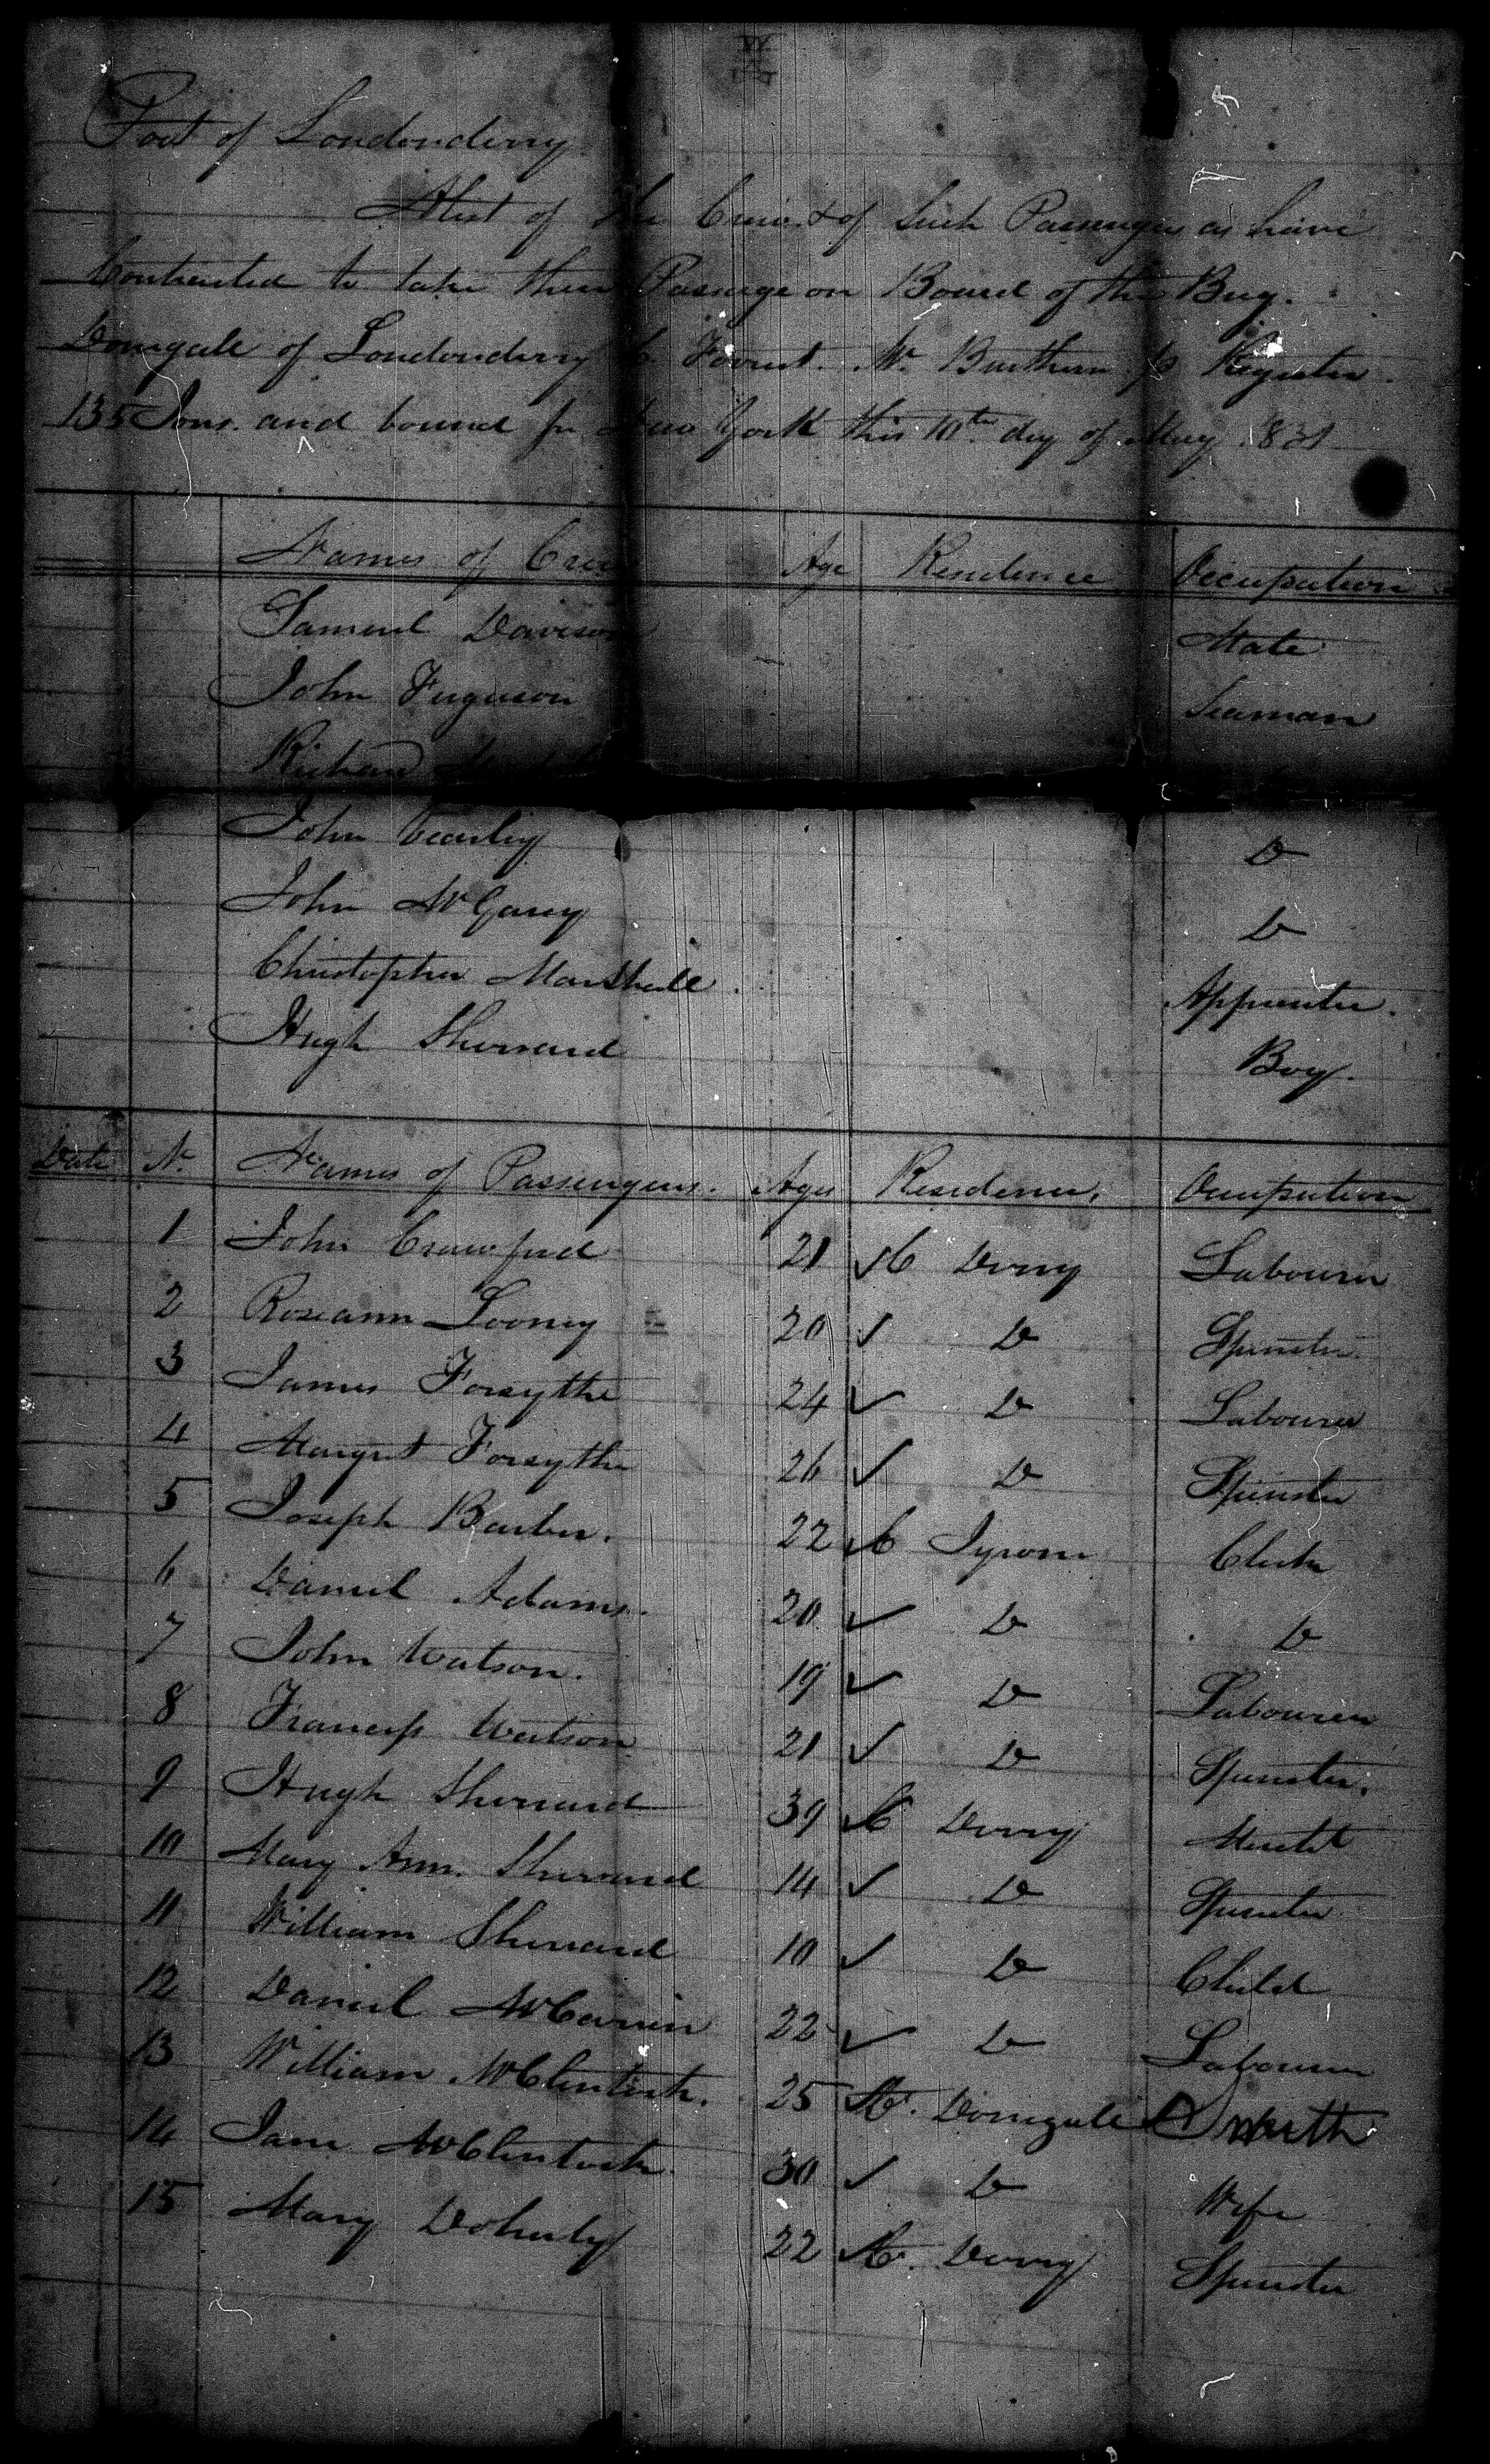 Port of Londonderry
A List of the Crew & of Such Passengers as have
Contracted to take their Passage on Board of the Brig.
Donegall of Londonderry C. Forrest. Mr. Burthen Register.
135 Tons. and bound for New York this 10th day of May 1831
Names of Crew Age Residence Occupation
Samuel Davison Mate
John Ferguson Seaman
Richard
John Do
John McGarey Do
Christopher Marshall. Apprentice.
Hugh Sherrard Boy.
Date No. Names of Passengers. Ages Residence, Occupation
1 John Crawford 21 Co Derry Labourer
2 Roseann Looney 20 Do Spinster
3 James Forsythe 24 Do Labourer
4 Margret Forsythe 26 Do Spinster
5 Joseph Barber. 22 Co Tyrone Clerk
6 Daniel Adams. 20 Do Do
7 John Watson. 19 Do Labourer
8 Francess Watson 21 Do Spinster.
9 Hugh Sherrard 39 Co Derry
10 Mary Ann. Sherrard 14 Do Spinster
11 William Sherrard 10 Do Child
12 Daniel 22 Do Labourer
13 William McClintock. 25 Co. Donegall Smith
14 Jane McClintock. 30 Do Wife
15 Mary Doherty 22 Co. Derry Spinster